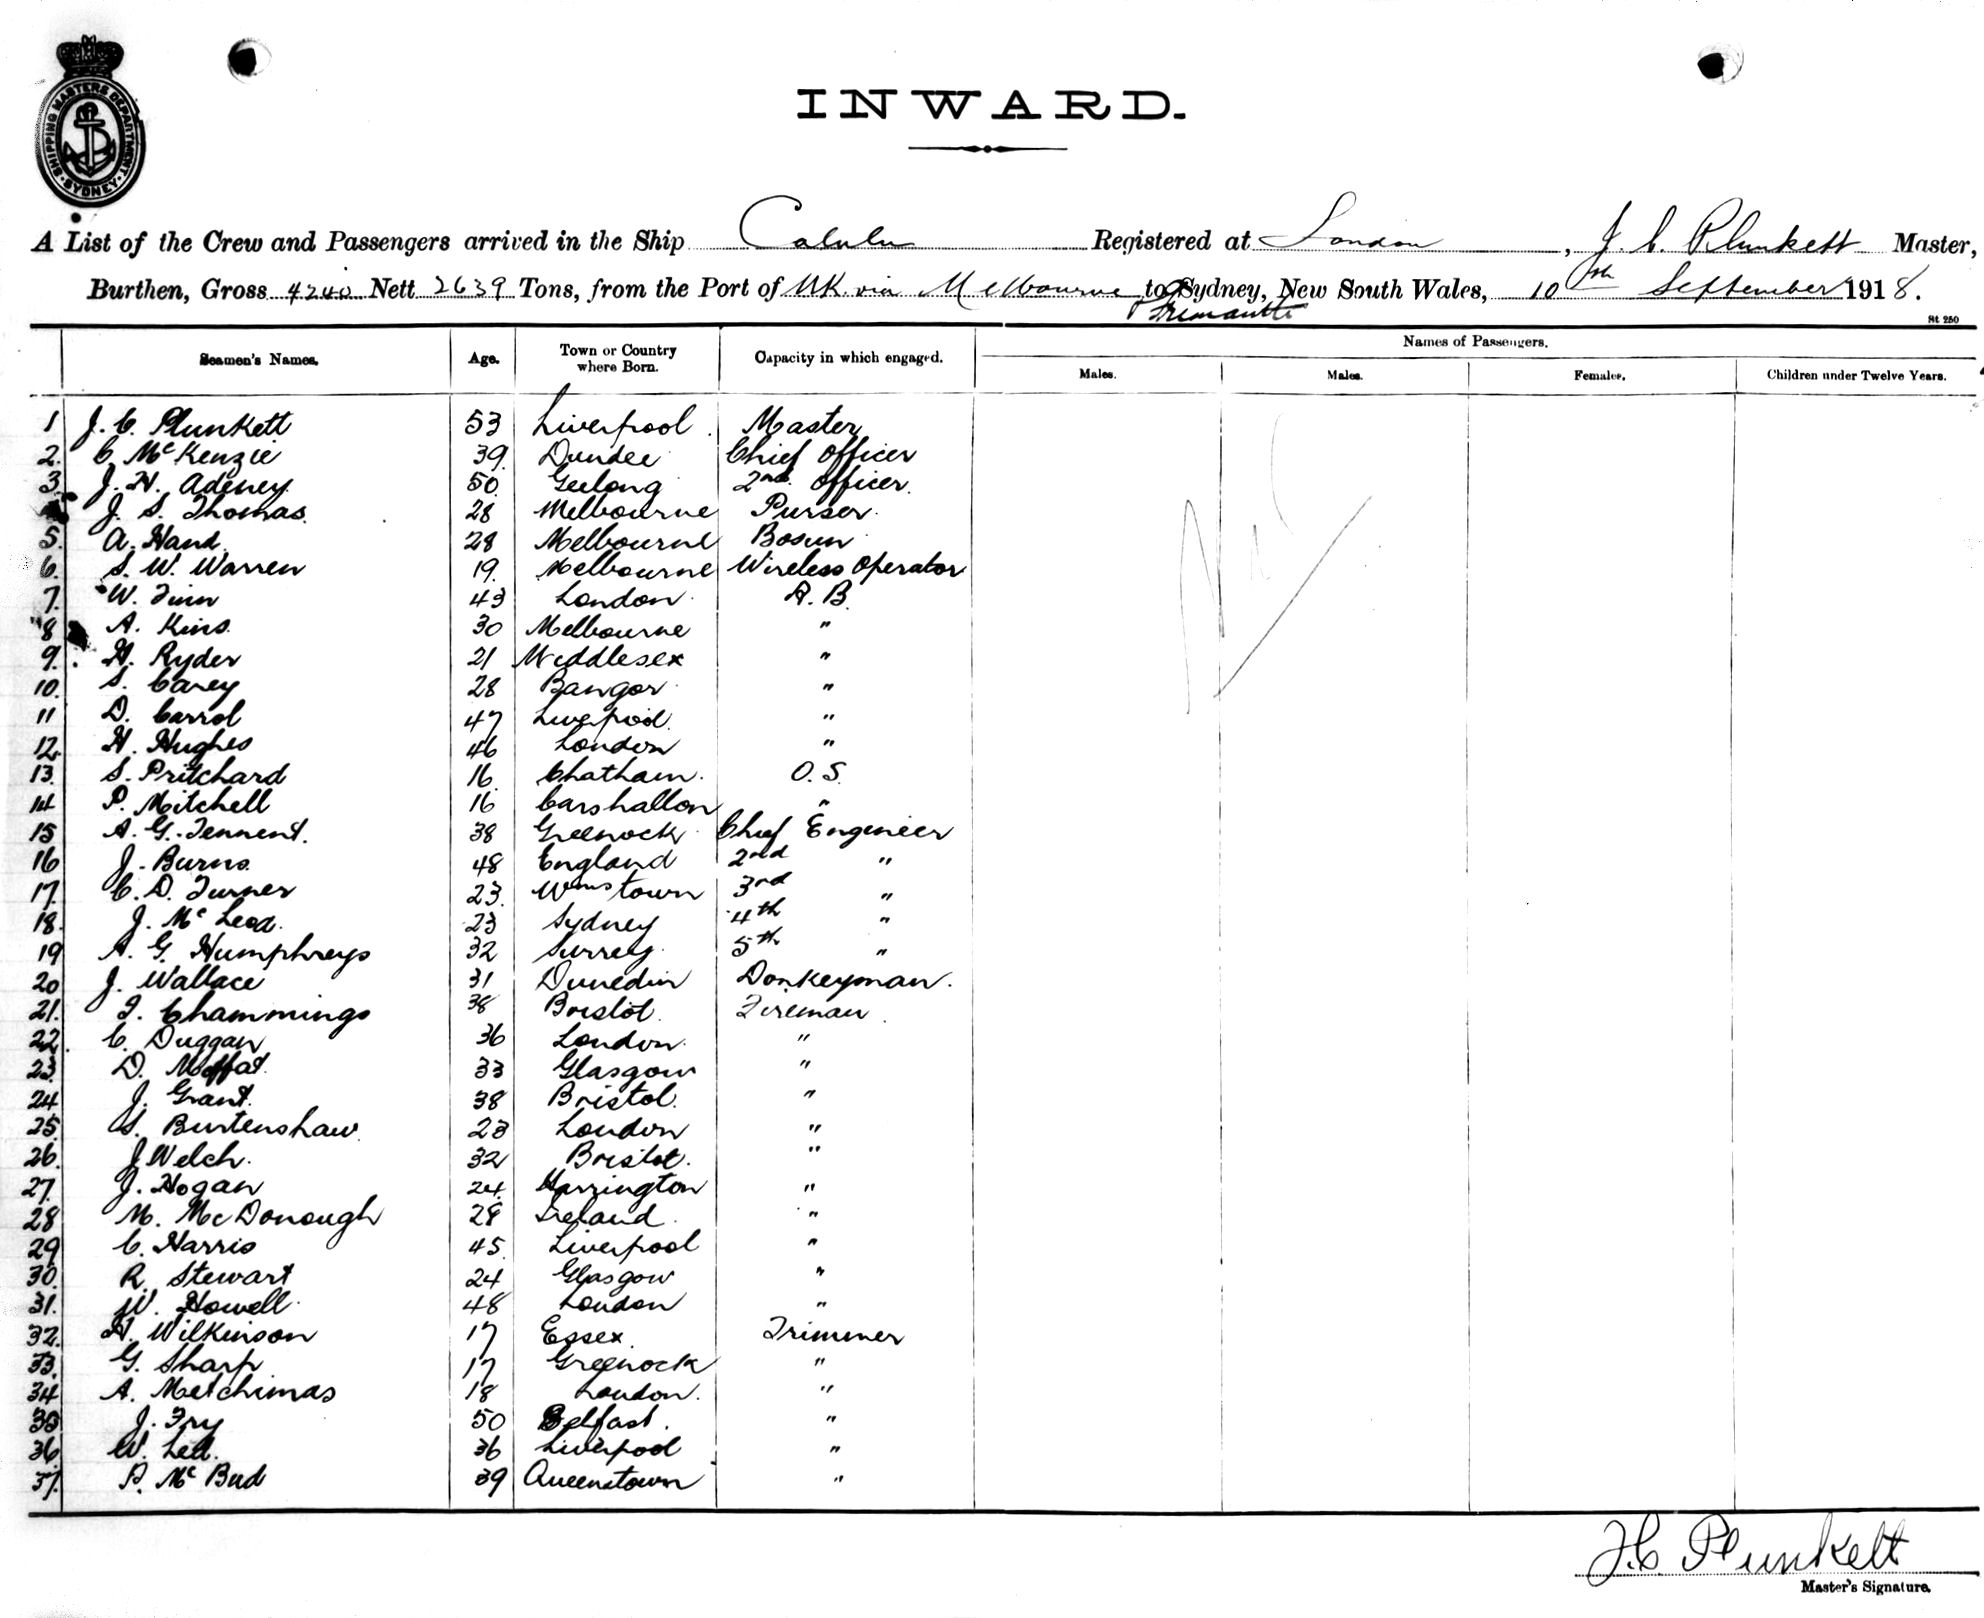 SHIPPING MASTERS DEPARTMENT. SYDNEY
INWARD.
A List of the Crew and Passengers arrived in the Ship Calulu Registered at London, J. C. Plunkett Master,
Burthen, Gross 4240 Nett 2639 Tons, from the Port of UK via Melbourne to Sydney, New South Wales, 10th September 1918.
Fremantle
St 250
Seamen's Names. Age. Town or Country where Born. Capacity in which engaged. Names of Passengers.
Males. Males. Females. Children under Twelve Years.
1 J. C. Plunkett 53 Liverpool Master
2. C McKenzie 39 Dundee Chief Officer
3. J. H. Adeney 50 Geelong 2nd Officer
J. S. Thomas 28 Melbourne Purser
5. A. Hand 28 Melbourne Bosun
6. S. W. Warren 19 Melbourne Wireless Operator
7. W. Finn 43 London A.B.
8 A. Kins 30 Melbourne "
9. H. Ryder 21 Middlesex "
10. S. Carey 28 Bangor "
11 D. Carrol 47 Liverpool "
12. H. Hughes 46 London "
13. S. Pritchard 16 Chatham O.S.
14 P. Mitchell 16 Carshallon "
15 A. G. Tennent. 38 Greenock Chief Engineer
16 J. Burns 48 England 2nd "
17. C. D. Turner 23 Wmstown 3rd "
18. J. McLeod 23 Sydney 4th "
19 A. G. Humphreys 32 Surrey 5th "
20 J. Wallace 31 Dunedin Donkeyman.
21. F. Chammings 38 Bristol Fireman
22. C. Duggan 36 London "
23. D. Moffat 33 Glasgow "
24 J. Grant. 38 Bristol. "
25. S. Burtenshaw 23 London "
26. J Welch. 32 Bristol. "
27. J. Hogan 24 Harrington "
28 M. McDonough 28 Ireland "
29 C. Harris 45 Liverpool "
30. R. Stewart 24 Glasgow "
31. W. Howell 48 London "
32. H. Wilkinson 17 Essex Trimmer
33. G. Sharp 17 Greenock "
34 A. Metchimas 18 London. "
35 J. Fry 50 Belfast "
36. W. Led. 36 Liverpool "
37. P. Mc Bud 39 Queenstown "
Nil
J.C Plunkett
Master's Signature.